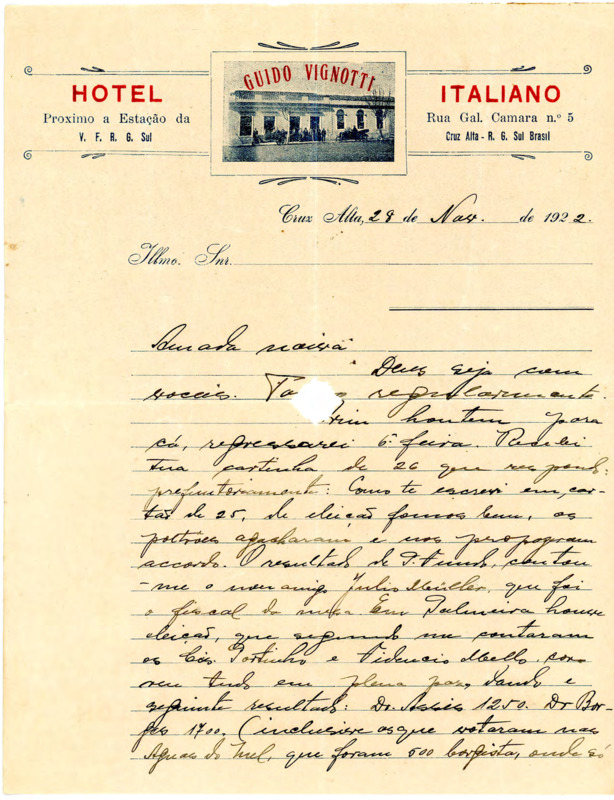 GUIDO VIGNOTTI
HOTEL
Proximo a Estação da
V. F. R. G. Sul
ITALIANO
Rua Gal. Camara n.º 5
Cruz Alta - R. G. Sul Brasil
Cruz Alta, 28 de Nov. de 1922.
Illmo. Snr.
Amada noiva
Deus seja com
voceis. regularmente.
vim hontem para
cá, regressarei 6ª feira. Recebi
tua cartinha de 26 que respondo
prefuntoriamente: Como te escrevi em car-
tão de 25, de eleição fomos bem, os
potrões agacharam e nos propozeram
accordo. O resultado de P. Fundo, contou
-me o nosso amigo Julio Müller, que foi
o fiscal da mesa. Em Palmeira houve
eleição, que segundo me contaram
os Cis. Portinho e Fidencio Mello, cor-
reu tudo em plena paz, dando o
seguinte resultado: Dr. Assis 1250. Dr Bor-
ges 1700. (inclusive os que votaram nas
Aguas do Mel, que foram 500 borgista, onde só